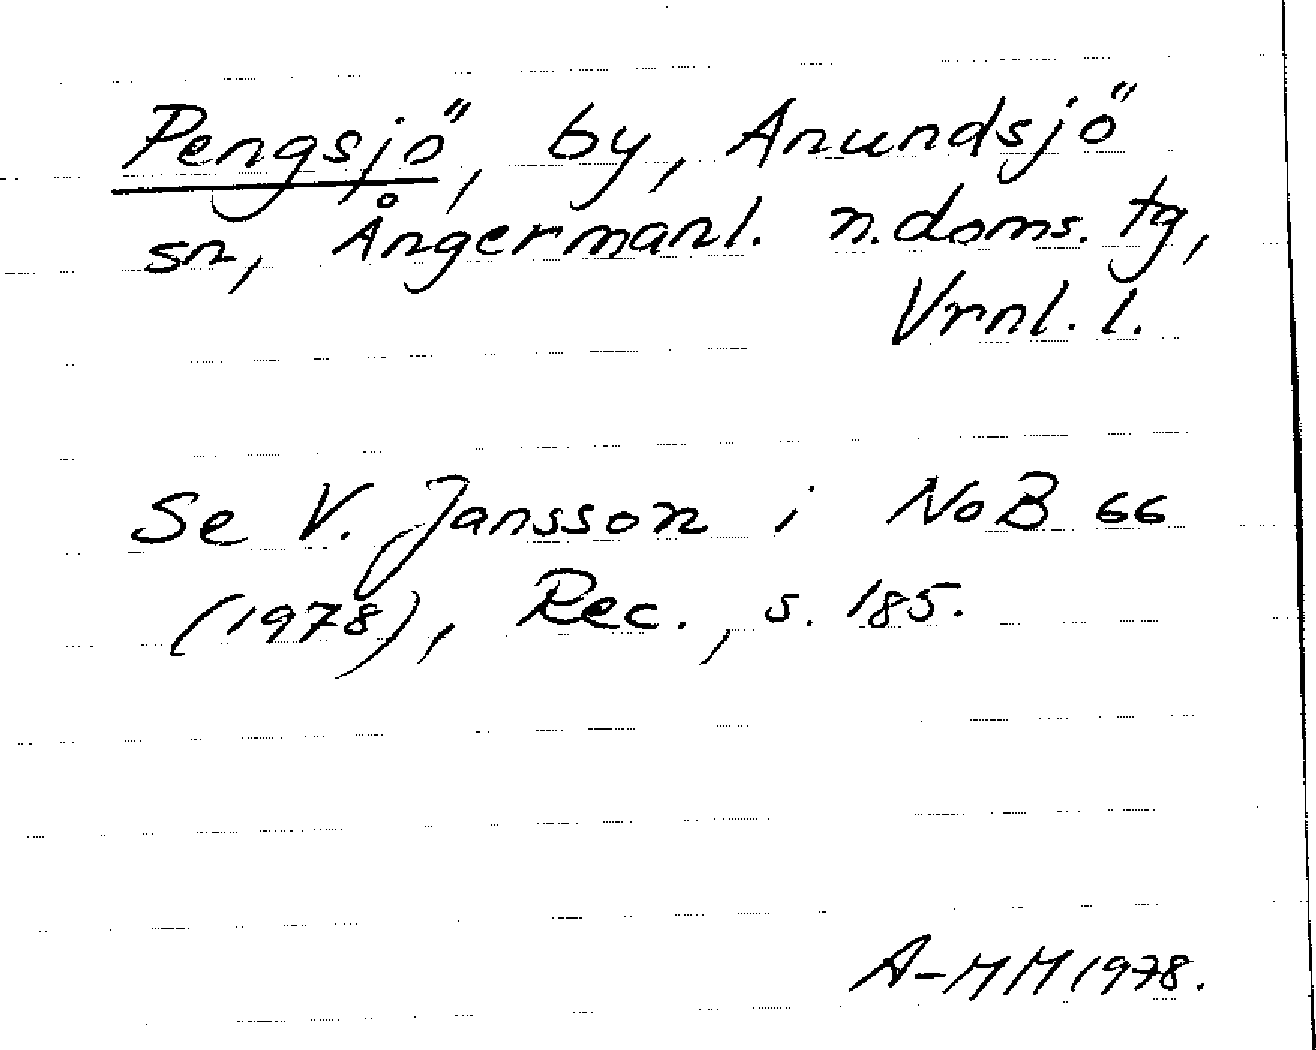 Pengsjö, by, Anundsjö
sn, Ångermanl. n. doms. tg,
Vrnl. l.
Se V. Jansson i NoB 66
(1978), Rec., s. 185.
A-MM 1978.